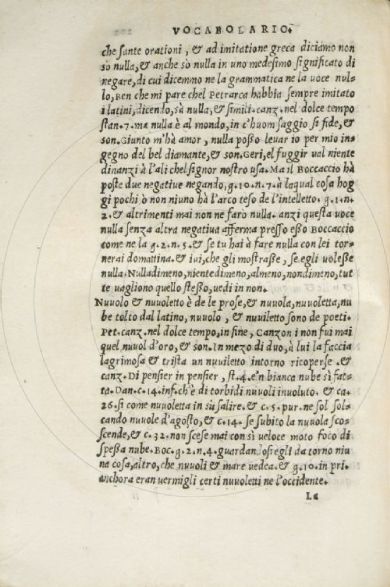 VOCABOLARIO.
che sante orationi, & ad imitatione greca diciamo non
sò nulla, & anche sò nulla in uno medesimo significato di
negare, di cui dicemno ne la grammatica ne la uoce nul-
lo, Ben che mi pare chel Petrarca habbia sempre imitato
i latini, dicendo, sà nulla, & simili. canz. nel dolce tempo
stan. 7. ma nulla è al mondo, in c'huom saggio si fide, &
son. Giunto m'hà amor, nulla posso leuar io per mio in-
gegno del bel diamante, & son. Geri, el fuggir ual niente
dinanzi à l'ali chel signor nostro usa. Ma il Boccaccio hà
poste due negatiue negando, g. 10. n. 7. à laqual cosa hog
gi pochi ò non niuno hà l'arco teso de l'intelletto. g. 1. n.
2. & altrimenti mai non ne farò nulla. anzi questa uoce
nulla senza altra negatiua afferma presso esso Boccaccio
come ne la g. 2. n. 5. & se tu hai à fare nulla con lei tor-
nerai domattina. & iui, che gli mostrasse, se egli uolesse
nulla. Nulladimeno, nientedimeno, almeno, nondimeno, tut
te uagliono quello stesso, uedi in non.
Nuuolo & nuuoletto è de le prose, & nuuola, nuuoletta, nu
be tolto dal latino, nuuolo, & nuuiletto sono de poeti.
Pet. canz. nel dolce tempo, in fine, Canzon i non fui mai
quel nuuol d'oro, & son. In mezo di duo, à lui la faccia
lagrimosa & trista un nuuiletto intorno ricoperse. &
canz. Di pensier in pensier, st. 4. e'n bianca nube sì fat-
ta. Dan. c. 14. inf. ch'è di torbidi nuuoli inuoluto. & ca.
26. si come nuuoletta in su salire. & c. 5. pur. ne sol sol-
cando nuuole d'agosto, & c. 14. se subito la nuuola sco-
scende, & c. 32. non scese mai con sì ueloce moto foco di
spessa nube. Boc. g. 2. n. 4. guardandosi egli da torno niu
na cosa, altro, che nuuoli & mare uedea. & g. 10. in pri.
anchora eran uermigli certi nuuoletti ne l'occidente.
La